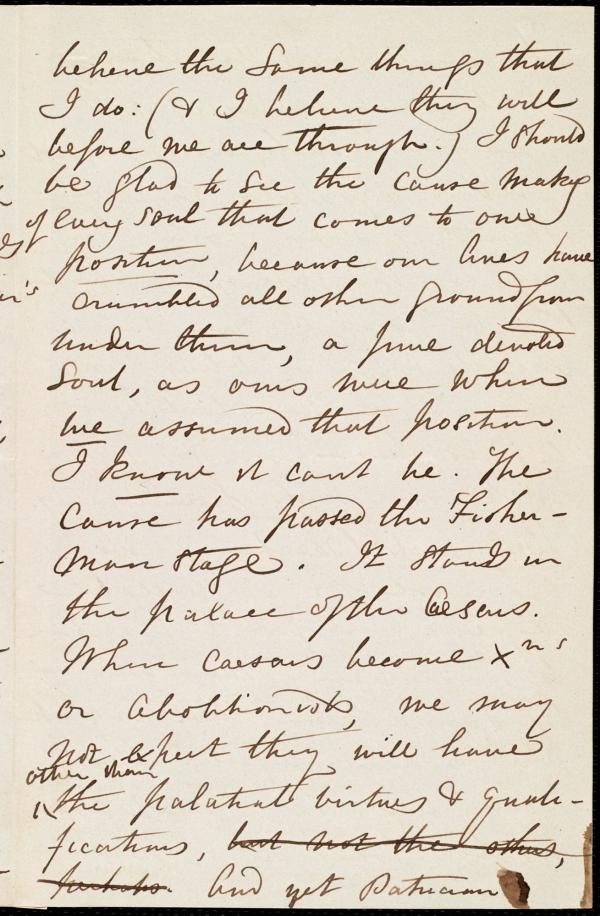 believe the same things that
I do: (& I believe they will
before we are through.) I should
be glad to see the cause make
of every soul that comes to our
position, because our lives have
crumbled all other ground from
under them, a pure devoted
soul, as ours were when
we assumed that position.
I know it cant be. The
cause has passed the Fisher-
man stage. It stands in
the palace of the Caesars.
When Caesars become Xns
or Abolitionists, we may
not expect they will have
other than
the palatial virtues & quali-
fications, but not the others,
perhaps. And yet Patrician